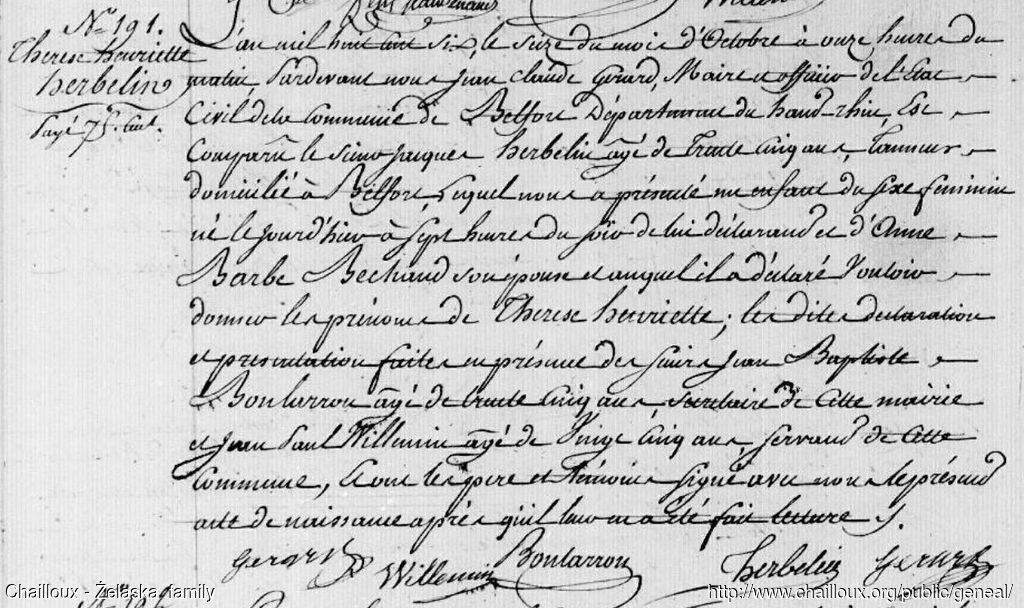 N° 191.
Therese henriette
herbelin
Payé 75. Cent.
L'an mil huit cent six, le seize du mois d'Octobre à onze heures du
matin, Pardevant nous Jean Claude Gerard, Maire et officier de l'Etat
Civil de la Commune de Belfort Département du haut-rhin, Est
Comparu le sieur Jacques herbelin âgé de trente Cinq ans, Tanneur,
domicilié à Belfort, Lequel nous a présenté un enfant du sexe feminin
né le jour d'hier à sept heures du soir de lui déclarant et d'Anne
Barbe Bechaud son épouse et auquel il a déclaré Vouloir
donner les prénoms de Therese henriette; les dites declaration
et presentation faites en présence des sieurs Jean Baptiste
Bontarron âgé de trente Cinq ans, secretaire de Cette mairie
et Jean Paul Willemin âgé de Vingt Cinq ans, servand de Cette
Commune, Et ont les pere et témoins signé avec nous le présend
acte de naissance après qu'il leur en a été fait lecture ./.
Gerard
Willemin
Bontarron
Therbelin
Gerard
Chailloux - Żelaska family
http://www.chailloux.org/public/geneal/